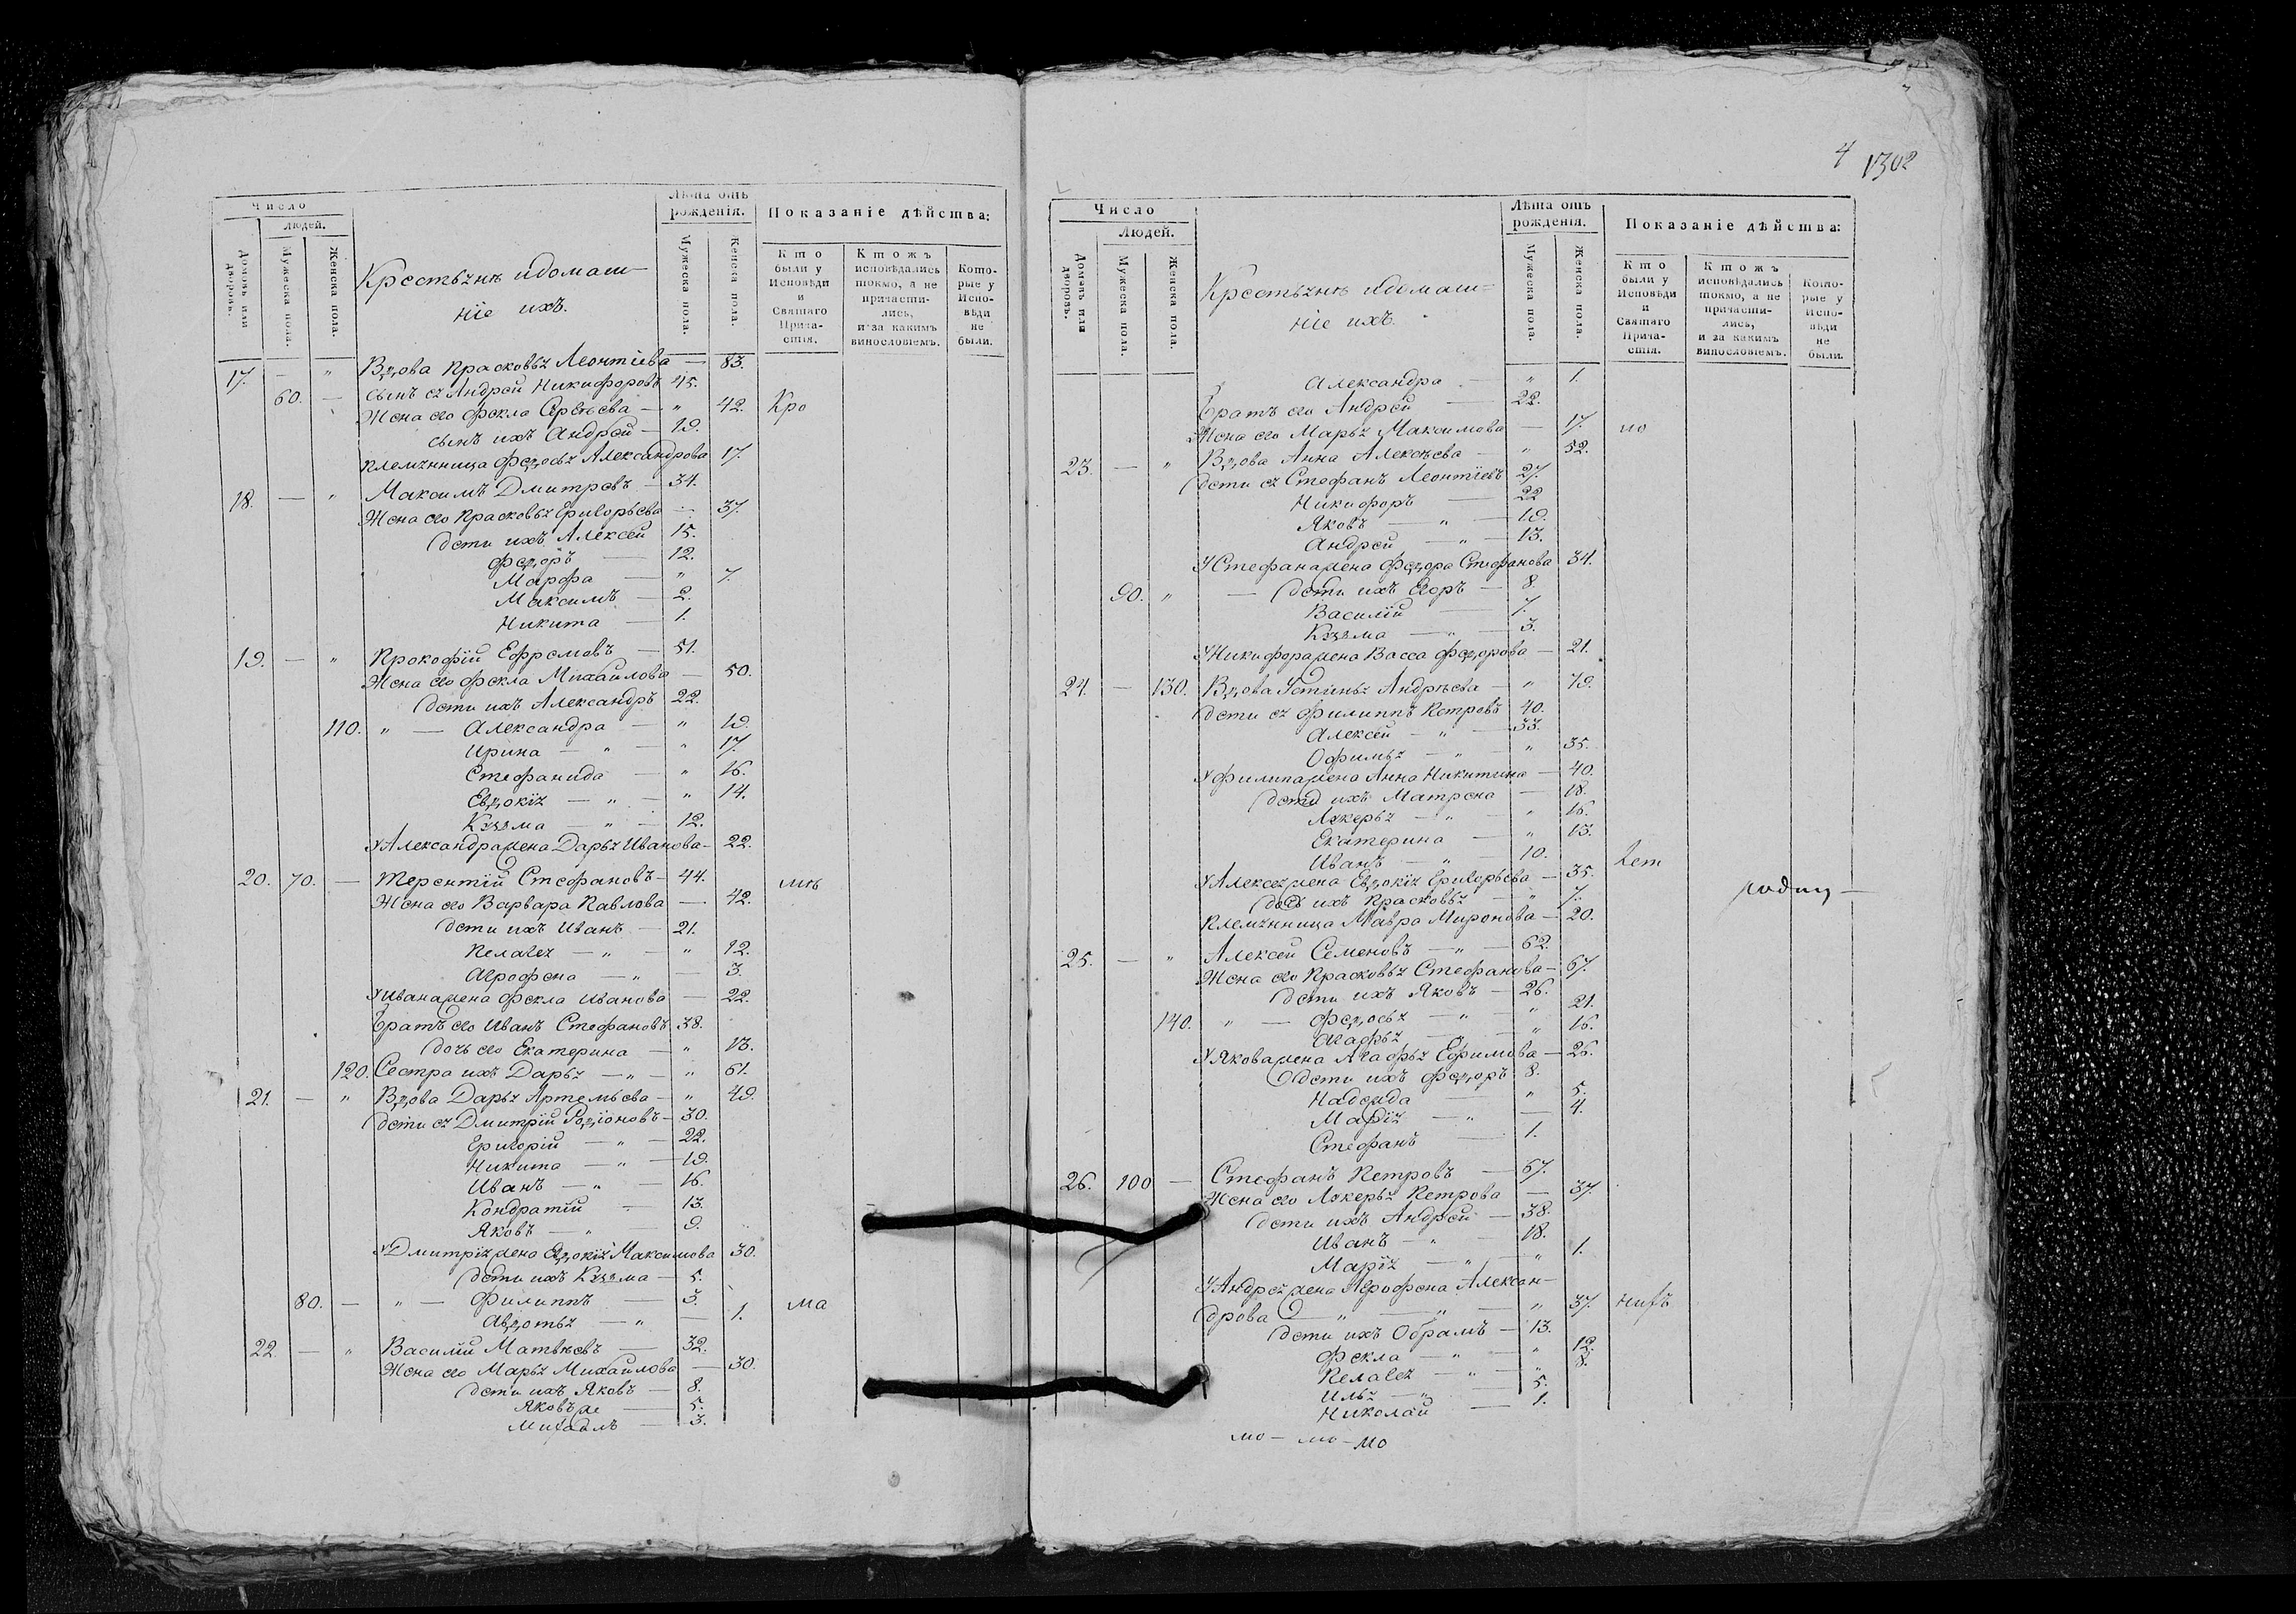 Число
людей.
Домовъ или дворовъ.
Мужеска пола.
Женска пола.
Крестьянѣ и домаш-
ніе ихъ.
Лѣта отъ
рожденія.
Мужеска пола.
Женска пола.
Показаніе дѣйства:
Кто были у Исповѣди и Святаго Прича-стія.
Ктожъ исповѣдались токмо, а не причасти-лись, и за какимъ винословіемъ.
Кото-рые у Испо-вѣди не были.
17. — " Вдова Прасковья Леонтіева — 83.
60. — сынъ ея Андрей Никифоровъ 45.
Жена его Фекла — " 42. Кро
сынъ ихъ Андрей — 19.
племянница Федосья Александрова 17.
18. — " Максимъ Дмитревъ — 34.
Жена его Прасковья Григорьева — 37.
дети ихъ Алексей 15.
Федоръ — 12.
Марфа — " 7.
Максимъ — 2.
Никита — 1.
19. — " Прокофій Ефремовъ — 51.
Жена его Фекла Михайлова — 50.
дети ихъ Александръ 22.
110. " — Александра — " 19.
Ирина — " — " 17.
Стефанида — " 16.
Евдокія — " — " 14.
Кузма — " — 12.
У Александра жена Дарья Иванова — 22.
20. 70. — Терентій Стефановъ — 44. мѣ
Жена его Варвара Павлова — 42.
дети ихъ Иванъ — 21.
Пелагея — " — " 12.
Агрофена — " — 3.
У Ивана жена Фекла Иванова — 22.
братъ его Иванъ Стефановъ 38.
дочь его Екатерина — " 13.
120. Сестра ихъ Дарья — " — " 61.
21. — " Вдова Дарья Артемьева — " 49.
дети ея Дмитрій Родіоновъ — 30.
Григорій — " — 22.
Никита — " — 19.
Иванъ — " — 16.
Кондратій — 13.
Яковъ — " — 9.
У Дмитрія жена Евдокія Максимова 30.
дети ихъ Кузма — 5.
80. — " — Филиппъ — 3. ма
Авдотья — " — 1.
22. — " Василій Матвѣевъ — 32.
Жена его Марья Михайлова — 30.
дети ихъ Яковъ — 8.
Яковъ же — 5.
Михаилъ — 3.
4 1302
Число
Людей.
Домовъ или дворовъ.
Мужеска пола.
Женска пола.
Крестьянѣ и домаш=
ніе ихъ.
Лѣта отъ
рожденія.
Мужеска пола.
Женска пола.
Показаніе дѣйства:
Кто были у Исповѣди и Святаго Прича-стія.
Ктожъ исповѣдались токмо, а не причасти-лись, и за какимъ винословіемъ.
Кото-рые у Испо-вѣди не были.
Александра — " 1.
братъ его Андрей — 22.
Жена его Марья Максимова — 17. но
23. — " Вдова Анна Алексѣева — " 52.
дети ея Стефанъ Леонтіевъ 27.
Никифоръ — 22
Яковъ — " — 19.
Андрей — " — 13.
У Стефана жена Федора Стефанова 34.
90. " — дети ихъ Егоръ — 8.
Василій — 7.
Кузма — " — 3.
У Никифора жена Васса Федорова — 21.
24. — 130. Вдова Устинья Андрѣева — " 79.
дети ея Филиппъ Петровъ 40.
Алексей — " — 33.
Офимья — " — " 35.
У Филипа жена Анна Никитина — 40.
дети ихъ Матрена — 18.
Лукерья — " — " 16.
Екатерина — " 13.
Иванъ — " — 10.
У Алексея жена Евдокія Григорьева — 35.
дочь ихъ Прасковья — " 7.
племянница Мавра Миронова — 20.
25. — " Алексей Семеновъ — " — 62.
Жена его Прасковья Стефанова — 67.
дети ихъ Яковъ — 26.
140. " — Федосья — " — " 21.
Агафья — " 16.
У Якова жена Агафья Ефимова — 26.
дети ихъ Федоръ 8.
Надежда — " 5.
Марія — " — 4.
Стефанъ — 1.
26. 100 — Стефанъ Петровъ — 67.
Жена его Лукерья Петрова — 37.
дети ихъ Андрей — 38.
Иванъ — " — 18.
Марія — " — " 1.
У Андрея жена Агрофена Алексан-
дрова — " — " — " 37.
дети ихъ Обрамъ — 13.
Фекла — " — " 12.
Пелагея — " — " 8.
Илья — " — 5.
Николай — 1.
мо — мо — мо